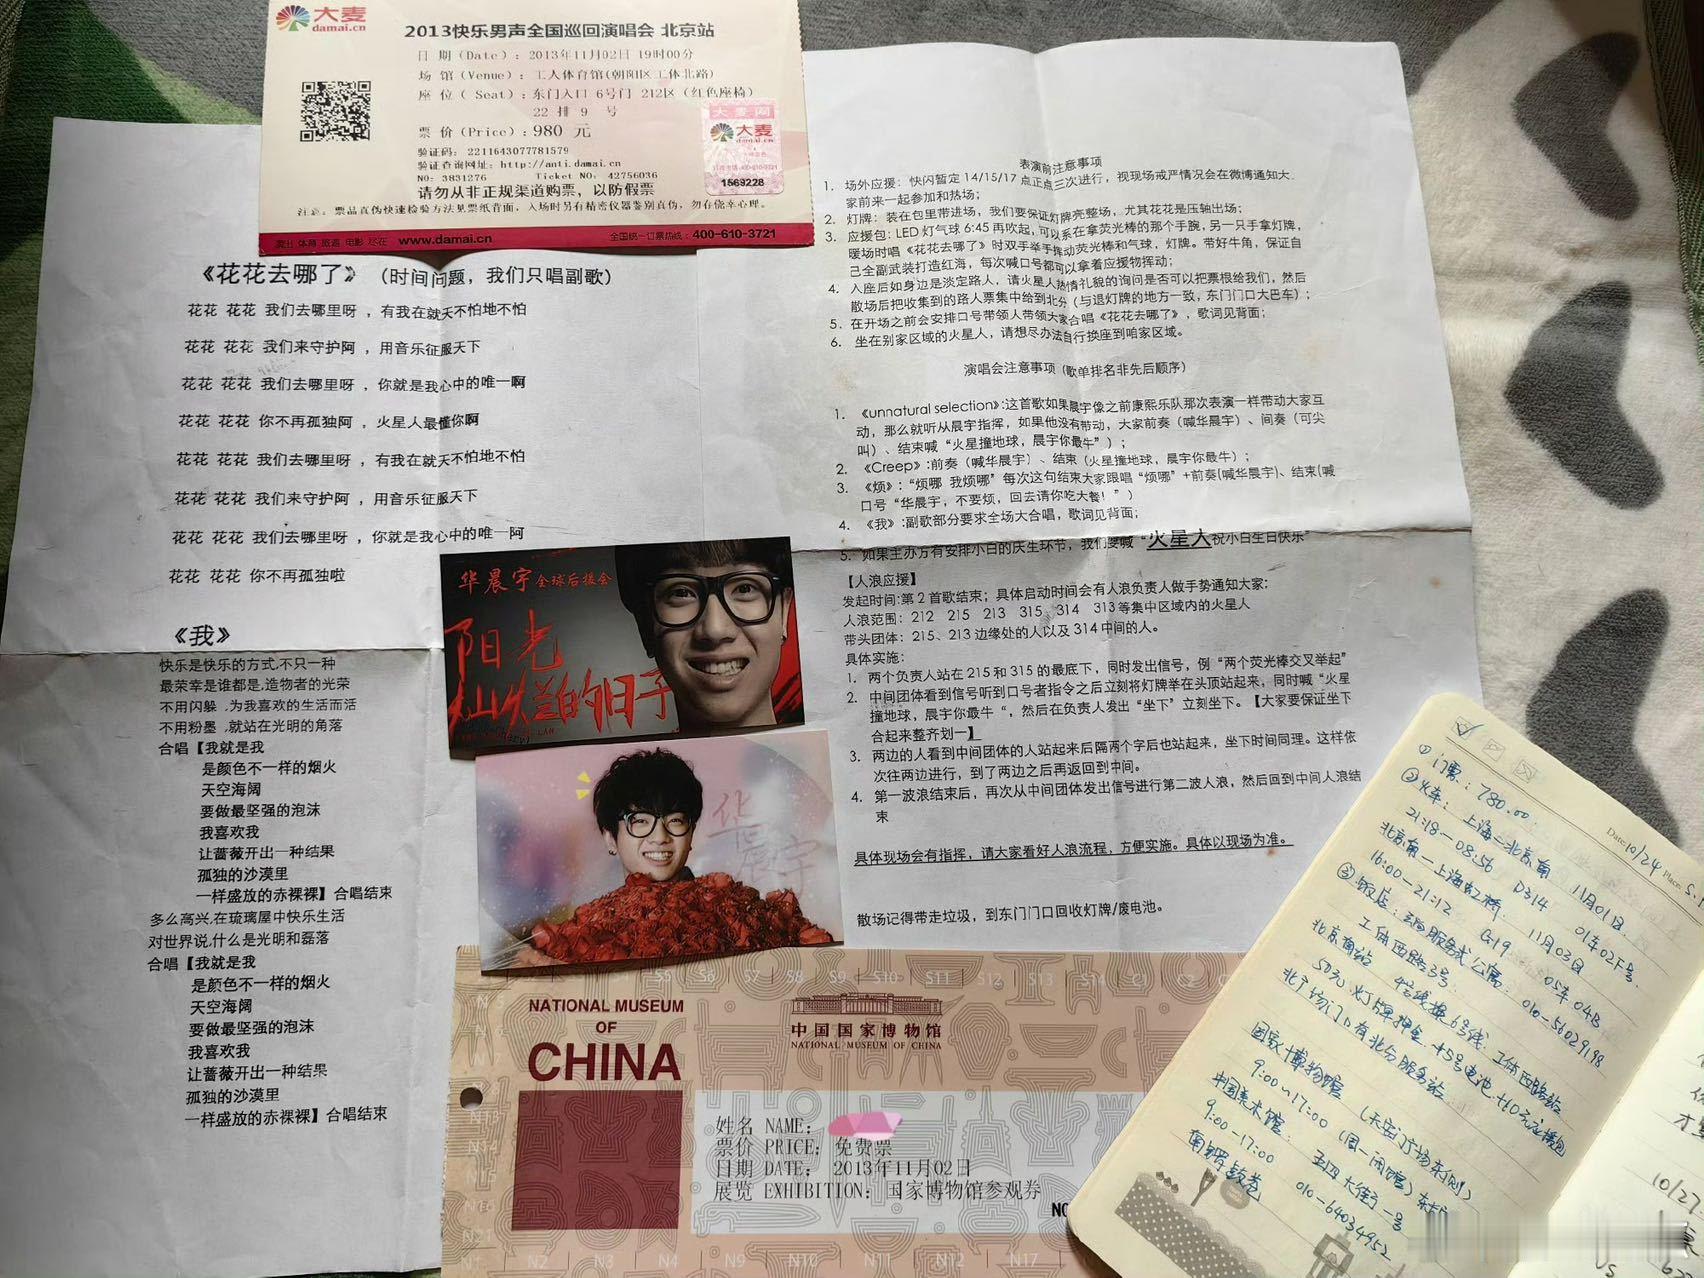 大麦
damai.cn
2013快乐男声全国巡回演唱会 北京站
日 期（Date）：2013年11月02日 19时00分
场 馆（Venue）：工人体育馆(朝阳区工体北路)
座 位（ Seat）：东门入口 6号门 212区（红色座椅）
22 排 9 号
票 价（Price）：980 元
验证码： 2211643077781579
验证查询网址：http://anti.damai.cn
NO: 3831276 Ticket NO: 42756036
请勿从非正规渠道购票，以防假票
注意：票品真伪快速检验方法见票纸背面，入场时另有精密仪器鉴别真伪，勿存侥幸心理。
大麦网
大麦
damai.cn
1569228
演出 体育 旅游 电影 尽在 www.damai.cn 全国统一订票热线：400-610-3721
《花花去哪了》（时间问题，我们只唱副歌）
花花 花花 我们去哪里呀 ，有我在就天不怕地不怕
花花 花花 我们来守护阿 ，用音乐征服天下
花花 花花 我们去哪里呀 ，你就是我心中的唯一啊
花花 花花 你不再孤独阿 ，火星人最懂你啊
花花 花花 我们去哪里呀 ，有我在就天不怕地不怕
花花 花花 我们来守护阿 ，用音乐征服天下
花花 花花 我们去哪里呀 ，你就是我心中的唯一阿
花花 花花 你不再孤独啦
《我》
快乐是快乐的方式,不只一种
最荣幸是谁都是,造物者的光荣
不用闪躲 ,为我喜欢的生活而活
不用粉墨 ,就站在光明的角落
合唱【我就是我
是颜色不一样的烟火
天空海阔
要做最坚强的泡沫
我喜欢我
让蔷薇开出一种结果
孤独的沙漠里
一样盛放的赤裸裸】合唱结束
多么高兴,在琉璃屋中快乐生活
对世界说,什么是光明和磊落
合唱【我就是我
是颜色不一样的烟火
天空海阔
要做最坚强的泡沫
我喜欢我
让蔷薇开出一种结果
孤独的沙漠里
一样盛放的赤裸裸】合唱结束
表演前注意事项
1. 场外应援：快闪暂定 14/15/17 点正点三次进行，视现场戒严情况会在微博通知大
家前来一起参加和热场；
2. 灯牌：装在包里带进场，我们要保证灯牌亮整场，尤其花花是压轴出场；
3. 应援包：LED 灯气球 6:45 再吹起，可以系在拿荧光棒的那个手腕，另一只手拿灯牌，
暖场时唱《花花去哪了》时双手举手挥动荧光棒和气球，灯牌。带好牛角，保证自
己全副武装打造红海，每次喊口号都可以拿着应援物挥动；
4. 入座后如身边是淡定路人，请火星人热情礼貌的询问是否可以把票根给我们，然后
散场后把收集到的路人票集中给到北分（与退灯牌的地方一致，东门门口大巴车）；
5. 在开场之前会安排口号带领人带领大家合唱《花花去哪了》，歌词见背面；
6. 坐在别家区域的火星人，请想尽办法自行换座到咱家区域。
演唱会注意事项（歌单排名非先后顺序）
1. 《unnatural selection》:这首歌如果晨宇像之前康熙乐队那次表演一样带动大家互
动，那么就听从晨宇指挥，如果他没有带动，大家前奏（喊华晨宇）、间奏（可尖
叫）、结束喊“火星撞地球，晨宇你最牛”）；
2. 《Creep》:前奏（喊华晨宇）、结束（火星撞地球，晨宇你最牛）；
3. 《烦》：“烦哪 我烦哪”每次这句结束大家跟唱“烦哪”+前奏(喊华晨宇)、结束(喊
口号“华晨宇，不要烦，回去请你吃大餐！”）
4. 《我》:副歌部分要求全场大合唱，歌词见背面；
5. 如果主办方有安排小白的庆生环节，我们要喊“火星人祝小白生日快乐”
【人浪应援】
发起时间:第 2 首歌结束；具体启动时间会有人浪负责人做手势通知大家：
人浪范围：212 215 213 315 314 313 等集中区域内的火星人
带头团体：215、213 边缘处的人以及 314 中间的人。
具体实施：
1. 两个负责人站在 215 和 315 的最底下，同时发出信号，例“两个荧光棒交叉举起”
2. 中间团体看到信号听到口号者指令之后立刻将灯牌举在头顶站起来，同时喊“火星
撞地球，晨宇你最牛 “，然后在负责人发出“坐下”立刻坐下。【大家要保证坐下
合起来整齐划一】
3. 两边的人看到中间团体的人站起来后隔两个字后也站起来，坐下时间同理。这样依
次往两边进行，到了两边之后再返回到中间。
4. 第一波浪结束后，再次从中间团体发出信号进行第二波人浪，然后回到中间人浪结
束
具体现场会有指挥，请大家看好人浪流程，方便实施。具体以现场为准。
散场记得带走垃圾，到东门门口回收灯牌/废电池。
华晨宇全球后援会
阳光
灿烂的日子
华晨宇
S5 S6 S7 S8 S9 S10 S11 S12 S13
NATIONAL MUSEUM
OF
CHINA
中国国家博物馆
NATIONAL MUSEUM OF CHINA
姓名 NAME：
票价 PRICE： 免费票
日期 DATE： 2013年11月02日
展览 EXHIBITION：国家博物馆参观券
N21 N1 N2 N3 N4 N9 N10 N11 N12 N17
Date 10/24 Place
① 门票：780.00
② 火车：上海—北京南 11月01日
21:18—08:56 D314 01车02F号
北京南—上海虹桥 11月03日
16:00—21:12 G19 05车04B
③ 饭店：服务式公寓 010-56029198
工体西路3号
北京南站 4号线换6号线 工体西路站
50元灯牌押金 +5号电池 +10元应援包
北广场门口有北分服务站
国家博物馆 （天安门广场东侧）
9:00~17:00 （周一闭馆）
中国美术馆：五四大街一号
9:00-17:00 010-64034952
南锣鼓巷
10/27